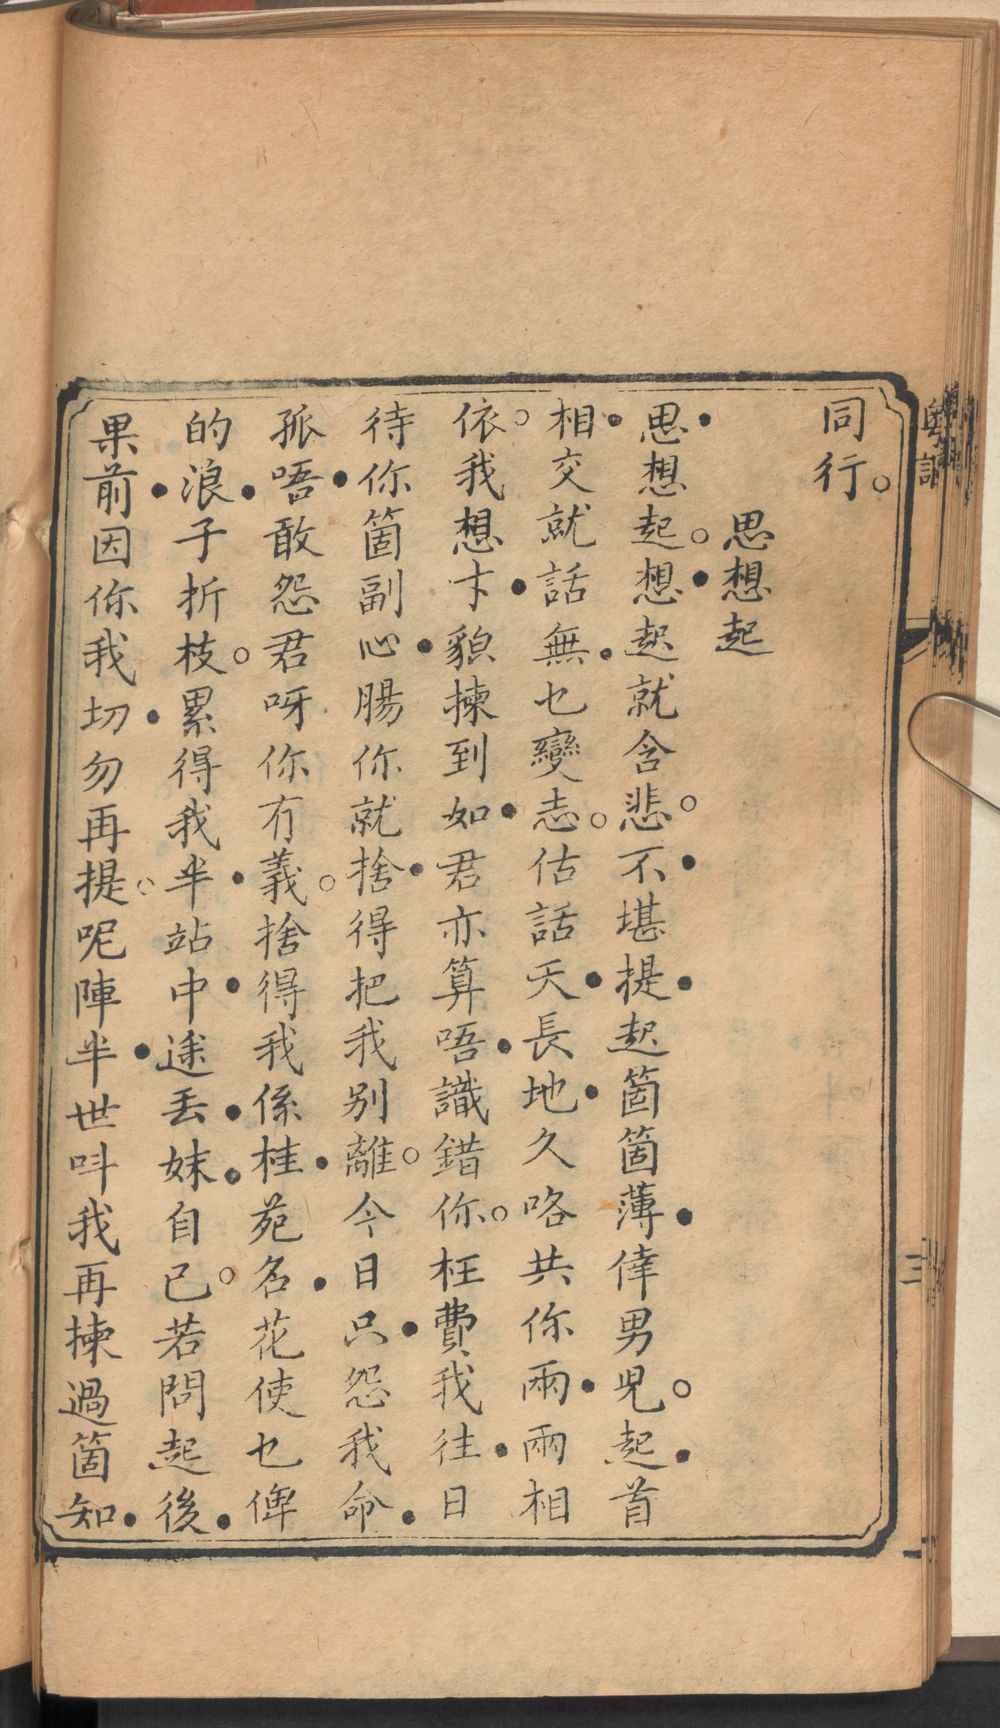 同行。
思想起
思想起。想起就含悲。不堪提起箇箇薄倖男兒。起首
相交就話無乜變志。估話天長地久咯共你兩兩相
依。我想才貌揀到如君亦算唔識錯你。枉費我往日
待你箇副心腸你就捨得把我別離。今日只怨我命
孤唔敢怨君呀你冇義。捨得我係桂苑名花使乜俾
的浪子折枝。累得我半站中途丟妹自己。若問起後
果前因你我切勿再提。呢陣半世呌我再揀過箇知
三